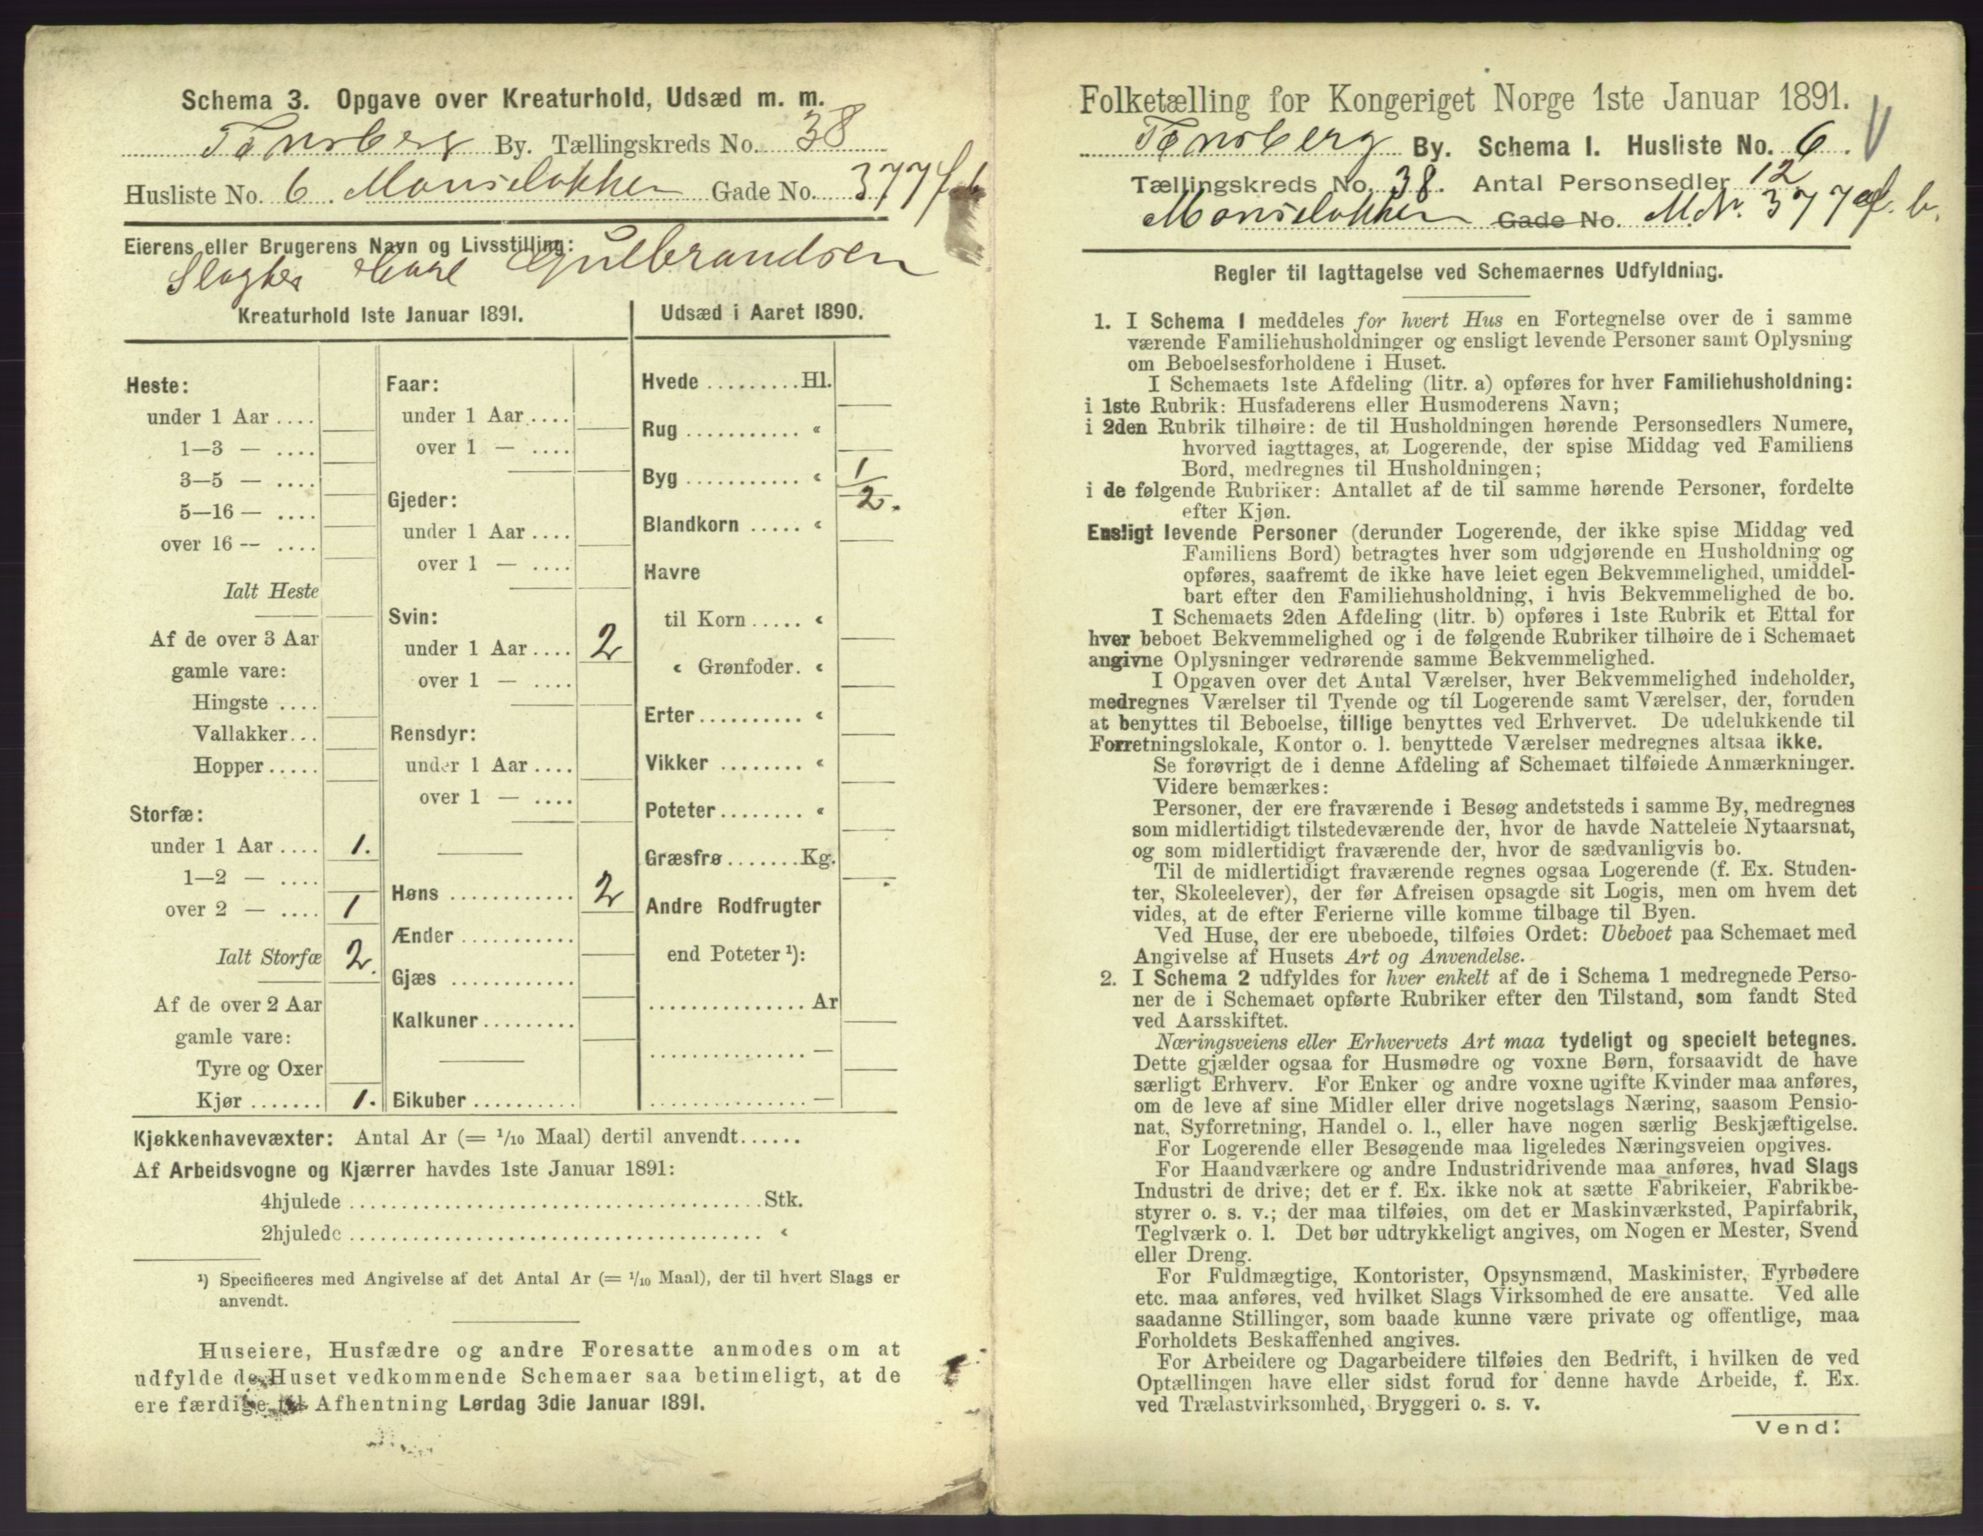 Schema 3. Opgave over Kreaturhold, Udsæd m. m.
Tønsberg By. Tællingskreds No. 38
Husliste No. 6 Monseløkken Gade No. 377
Eierens eller Brugerens Navn og Livsstilling:
Slagter Carl Gulbrandsen
Kreaturhold 1ste Januar 1891.
Heste:
under 1 Aar ....
1—3 — ....
3—5 — ....
5—16 — ....
over 16 — ....
Ialt Heste
Af de over 3 Aar
gamle vare:
Hingste ....
Vallakker...
Hopper.....
Storfæ:
under 1 Aar .... 1.
1—2 — ....
over 2 — .... 1
Ialt Storfæ 2.
Af de over 2 Aar
gamle vare:
Tyre og Oxer
Kjør ....... 1.
Faar:
under 1 Aar....
over 1 — ....
Gjeder:
under 1 Aar....
over 1 — ....
Svin:
under 1 Aar.... 2
over 1 — ....
Rensdyr:
under 1 Aar....
over 1 — ....
Høns ............ 2
Ænder ...........
Gjæs ............
Kalkuner.........
Bikuber ..........
Udsæd i Aaret 1890.
Hvede .........Hl.
Rug ........... «
Byg ........... « 1/2.
Blandkorn ..... «
Havre
til Korn ..... «
« Grønfoder. «
Erter.......... «
Vikker ........ «
Poteter........ «
Græsfrø.......Kg.
Andre Rodfrugter
end Poteter ¹):
............... Ar
............... —
............... —
Kjøkkenhavevæxter: Antal Ar (= 1/10 Maal) dertil anvendt......
Af Arbeidsvogne og Kjærrer havdes 1ste Januar 1891:
4hjulede ........................................Stk.
2hjulede ........................................ «
¹) Specificeres med Angivelse af det Antal Ar (= 1/10 Maal), der til hvert Slags er
anvendt.
Huseiere, Husfædre og andre Foresatte anmodes om at
udfylde de Huset vedkommende Schemaer saa betimeligt, at de
ere færdige til Afhentning Lørdag 3die Januar 1891.
Folketælling for Kongeriget Norge 1ste Januar 1891.
Tønsberg By. Schema I. Husliste No. 6.
Tællingskreds No. 38. Antal Personsedler 12
Monseløkken Gade No. MNr. 377 b.
Regler til Iagttagelse ved Schemaernes Udfyldning.
1. I Schema 1 meddeles for hvert Hus en Fortegnelse over de i samme
værende Familiehusholdninger og ensligt levende Personer samt Oplysning
om Beboelsesforholdene i Huset.
I Schemaets 1ste Afdeling (litr. a) opføres for hver Familiehusholdning:
i 1ste Rubrik: Husfaderens eller Husmoderens Navn;
i 2den Rubrik tilhøire: de til Husholdningen hørende Personsedlers Numere,
hvorved iagttages, at Logerende, der spise Middag ved Familiens
Bord, medregnes til Husholdningen;
i de følgende Rubriker: Antallet af de til samme hørende Personer, fordelte
efter Kjøn.
Ensligt levende Personer (derunder Logerende, der ikke spise Middag ved
Familiens Bord) betragtes hver som udgjørende en Husholdning og
opføres, saafremt de ikke have leiet egen Bekvemmelighed, umiddel-
bart efter den Familiehusholdning, i hvis Bekvemmelighed de bo.
I Schemaets 2den Afdeling (litr. b) opføres i 1ste Rubrik et Ettal for
hver beboet Bekvemmelighed og i de følgende Rubriker tilhøire de i Schemaet
angivne Oplysninger vedrørende samme Bekvemmelighed.
I Opgaven over det Antal Værelser, hver Bekvemmelighed indeholder,
medregnes Værelser til Tyende og til Logerende samt Værelser, der, foruden
at benyttes til Beboelse, tillige benyttes ved Erhvervet. De udelukkende til
Forretningslokale, Kontor o. l. benyttede Værelser medregnes altsaa ikke.
Se forøvrigt de i denne Afdeling af Schemaet tilføiede Anmærkninger.
Videre bemærkes:
Personer, der ere fraværende i Besøg andetsteds i samme By, medregnes
som midlertidigt tilstedeværende der, hvor de havde Natteleie Nytaarsnat,
og som midlertidigt fraværende der, hvor de sædvanligvis bo.
Til de midlertidigt fraværende regnes ogsaa Logerende (f. Ex. Studen-
ter, Skoleelever), der før Afreisen opsagde sit Logis, men om hvem det
vides, at de efter Ferierne ville komme tilbage til Byen.
Ved Huse, der ere ubeboede, tilføies Ordet: Ubeboet paa Schemaet med
Angivelse af Husets Art og Anvendelse.
2. I Schema 2 udfyldes for hver enkelt af de i Schema 1 medregnede Perso-
ner de i Schemaet opførte Rubriker efter den Tilstand, som fandt Sted
ved Aarsskiftet.
Næringsveiens eller Erhvervets Art maa tydeligt og specielt betegnes.
Dette gjælder ogsaa for Husmødre og voxne Børn, forsaavidt de have
særligt Erhverv. For Enker og andre voxne ugifte Kvinder maa anføres,
om de leve af sine Midler eller drive nogetslags Næring, saasom Pensio-
nat, Syforretning, Handel o. l., eller have nogen særlig Beskjæftigelse.
For Logerende eller Besøgende maa ligeledes Næringsveien opgives.
For Haandværkere og andre Industridrivende maa anføres, hvad Slags
Industri de drive; det er f. Ex. ikke nok at sætte Fabrikeier, Fabrikbe-
styrer o. s. v.; der maa tilføies, om det er Maskinværksted, Papirfabrik,
Teglværk o. l. Det bør udtrykkeligt angives, om Nogen er Mester, Svend
eller Dreng.
For Fuldmægtige, Kontorister, Opsynsmænd, Maskinister, Fyrbødere
etc. maa anføres, ved hvilket Slags Virksomhed de ere ansatte. Ved alle
saadanne Stillinger, som baade kunne være private og offentlige, maa
Forholdets Beskaffenhed angives.
For Arbeidere og Dagarbeidere tilføies den Bedrift, i hvilken de ved
Optællingen have eller sidst forud for denne havde Arbeide, f. Ex.
ved Trælastvirksomhed, Bryggeri o. s. v.
Vend: